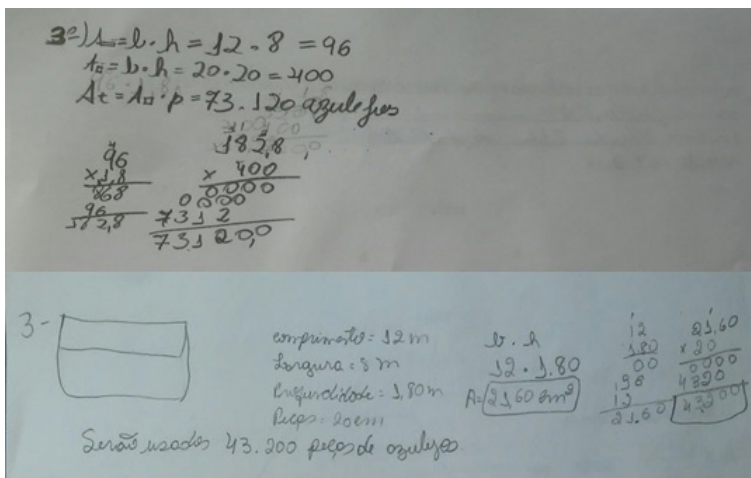 3º) A▭ = b · h = 12 · 8 = 96
A□ = b · h = 20 · 20 = 400
At = A□ · p = 73.120 azulejos
96
x 1,8
868
96
182,8
182,8
x 400
0000
0000
7312
73120,0
3-
comprimento = 12 m
Largura = 8 m
Profundidade = 1,80 m
Peças = 20 cm
b . h
12 . 1.80
A= 21,60 cm²
12
1,80
00
196
12
21.60
21,60
x 20
0000
4320
43200
Serão usados 43.200 peças de azulejos.